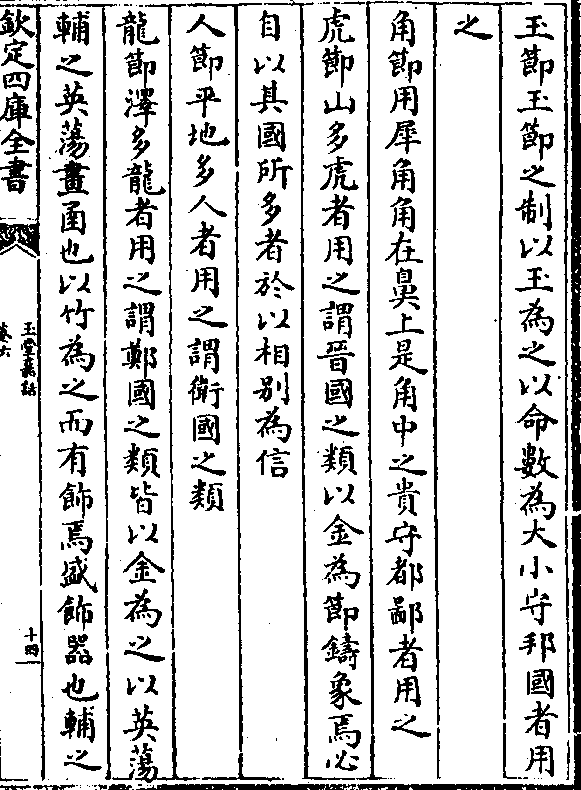 玉節玉節之制以玉為之以命數為大小守邦國者用
之
角節用犀角角在鼻上是角中之貴守都鄙者用之
虎節山多虎者用之謂晉國之類以金為節鑄象焉必
自以其國所多者於以相别為信
人節平地多人者用之謂衛國之類
龍節澤多龍者用之謂鄭國之類皆以金為之以英蕩
輔之英蕩畫函也以竹為之而有飾焉盛飾器也輔之
欽定四庫全書
玉堂嘉話
卷六
十四